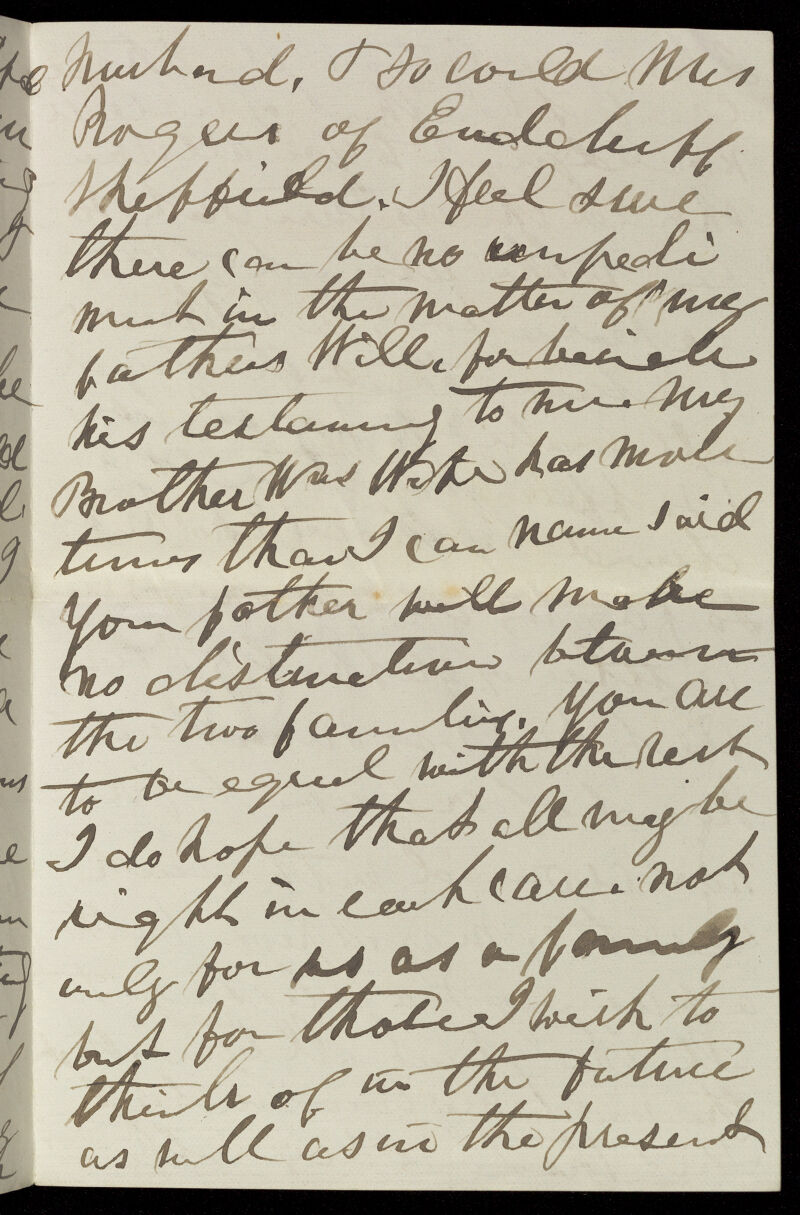 husband, & so could Mrs
Rogers of Endcliff
Sheffield. I feel sure
there can be no impedi
ment in the matter of my
fathers Will, for beside
his testamony to me. My
Brother Wm's Wife has more
times than I can name said
Your father will make
no distinction between
the two families. You are
to be equal with the rest
I do hope that all may be
right in each case. not
only for us as a family
but for those I wish to
think of in the future
as well as in the present